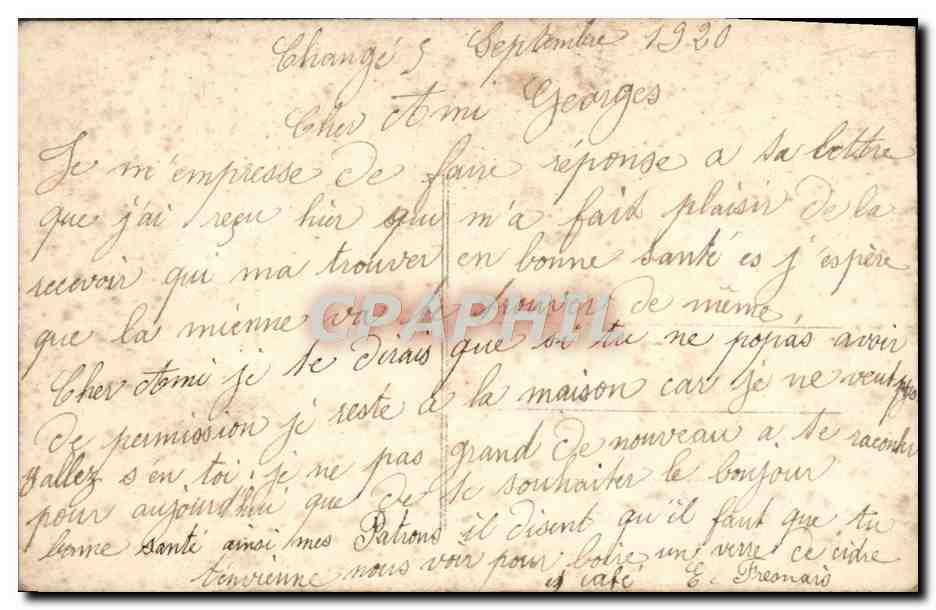 Changé 5 Septembre 1920
Cher Ami Georges
Je m'empresse de faire réponse a ta lettre
que j'ai reçu hier qui m'a fait plaisir de la
recevoir qui ma trouver en bonne santé es j'éspère
que la mienne va te trouver de même
Cher Ami je te dirais que si tu ne popas avoir
de permission je reste a la maison car je ne veut pas
y allez s'en toi, je ne pas grand de nouveau a te raconter
pour aujourd'hui que de te souhaiter le bonjour
bonne santé ainsi mes Patrons il disent qu'il faut que tu
t'envienne nous voir pour boire un verre de cidre
es café E. Fresnais
CPAPHIL